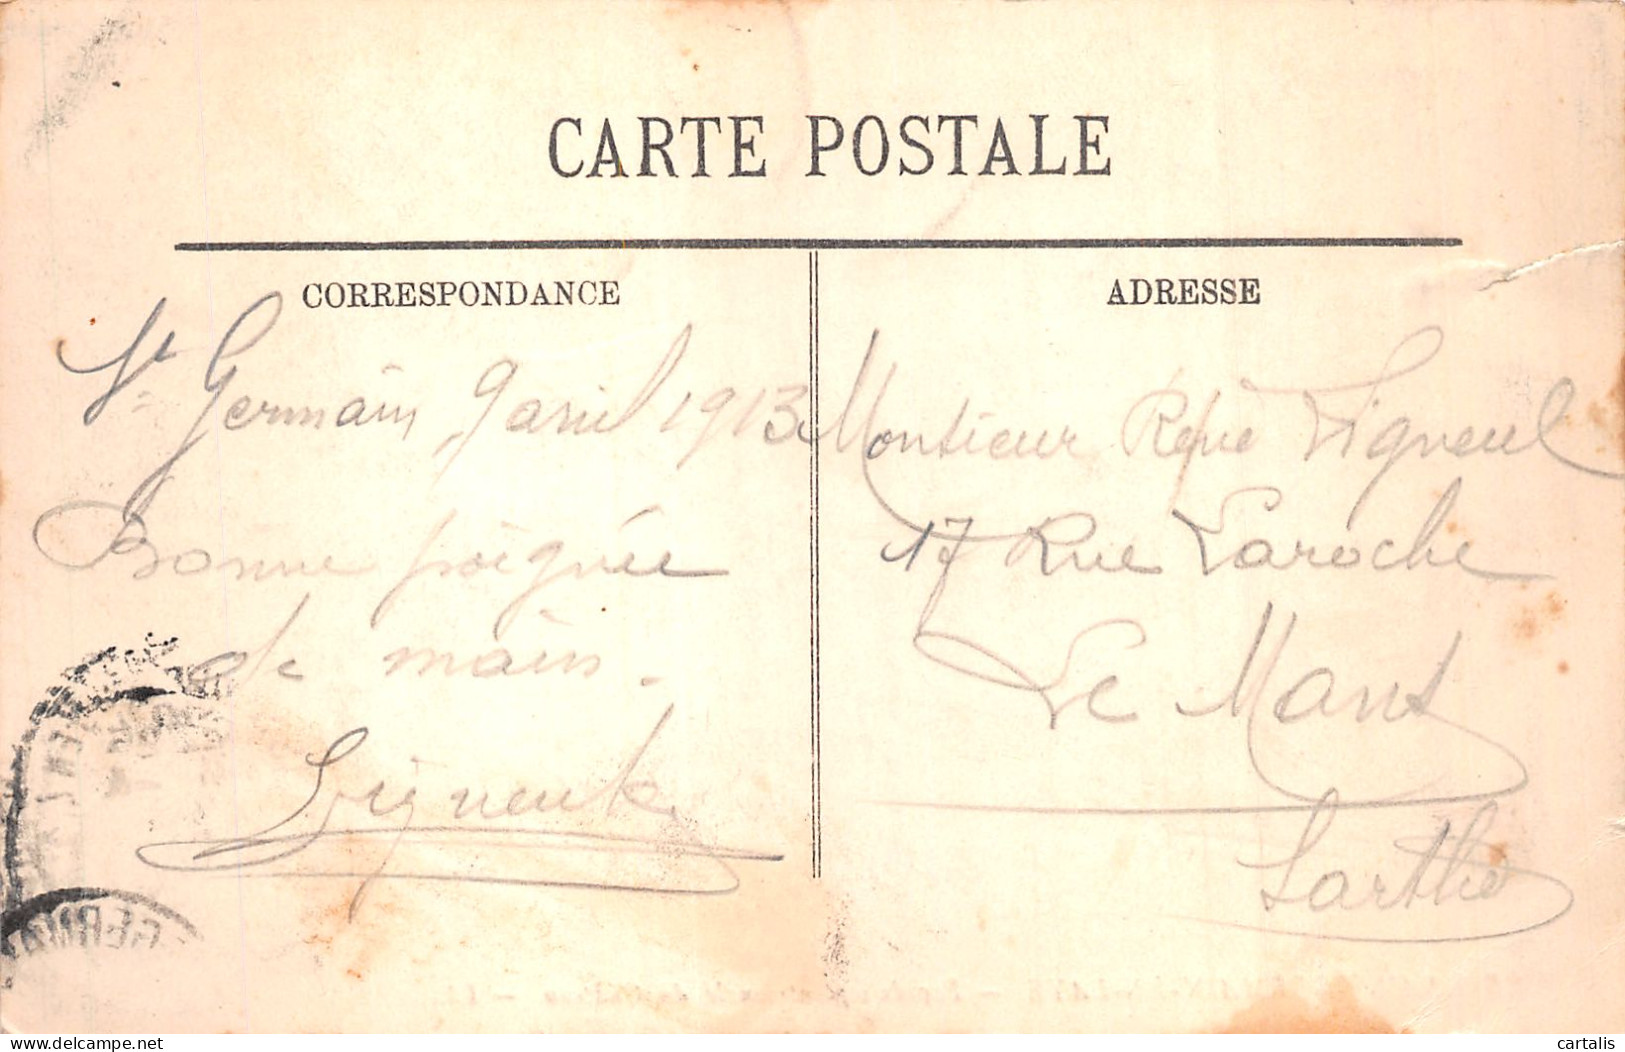 CARTE POSTALE
CORRESPONDANCE
St Germain 9 avril 1913
Bonne poignée
de main.
Vigneule
ADRESSE
Monsieur René Vigneul
17 Rue Laroche
Le Mans
Sarthe
www.delcampe.net
cartalis